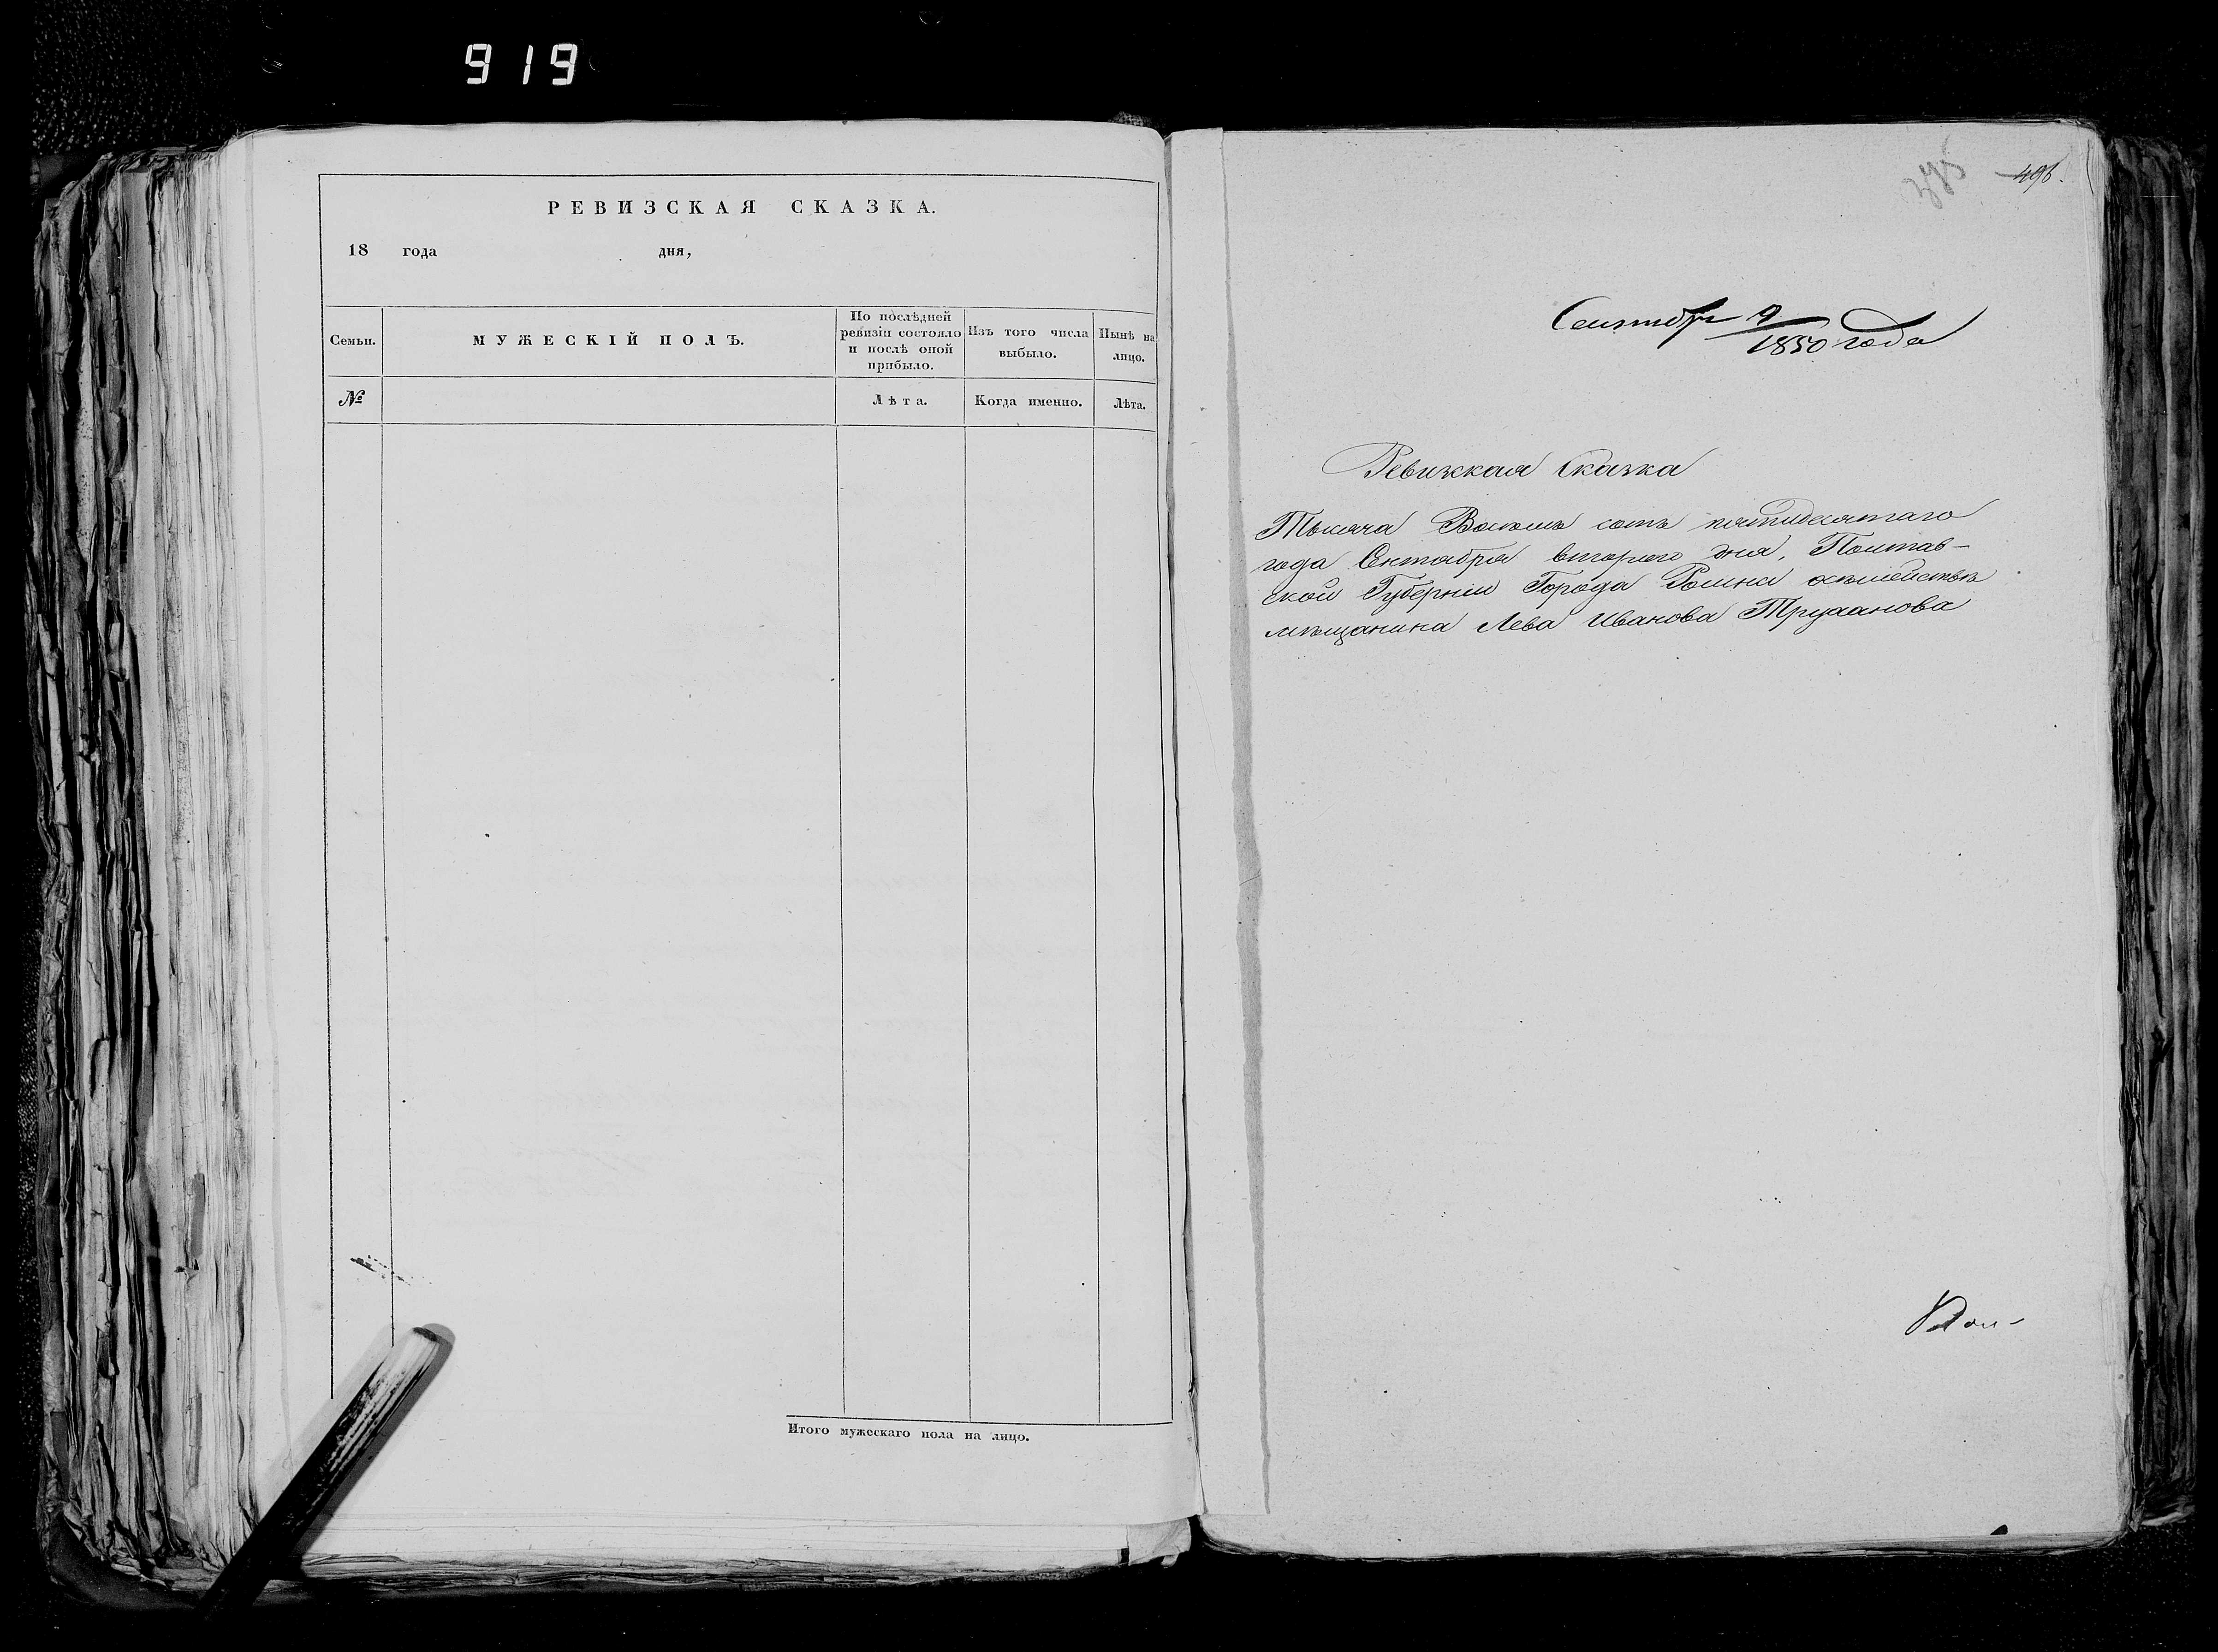 919
РЕВИЗСКАЯ СКАЗКА.
18 года дня,
Семьи.
МУЖЕСКІЙ ПОЛЪ.
По послѣдней ревизіи состояло и послѣ оной прибыло.
Изъ того числа выбыло.
Нынѣ на лицо.
№
Лѣта.
Когда именно.
Лѣта.
Итого мужескаго пола на лицо.
375
496.
Сентябр 9
1850 года
Ревизкая Сказка
Тысяча Восемь сотъ пятидесятаго
года Сентабря второго дня, Полтав-
ской Губерніи Города Ромна
мѣщанина Лева Иванова